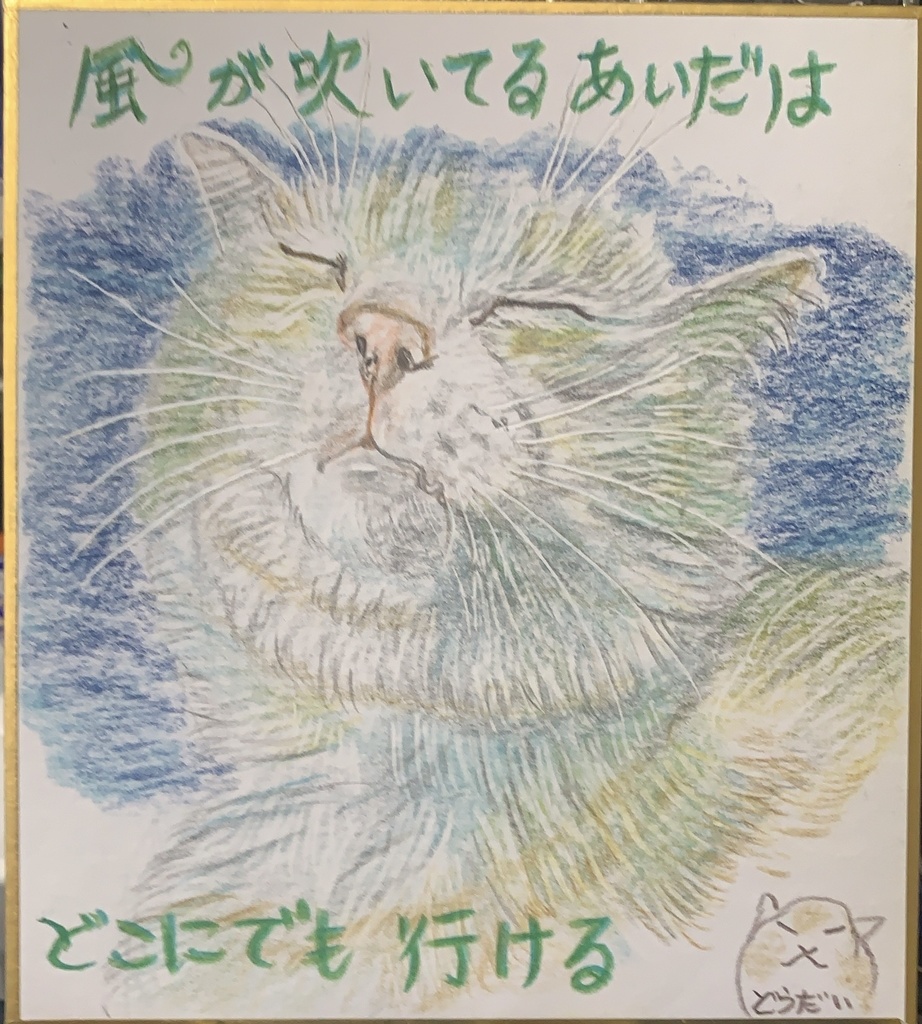 風が吹いてるあいだは
どこにでも行ける
どらだい